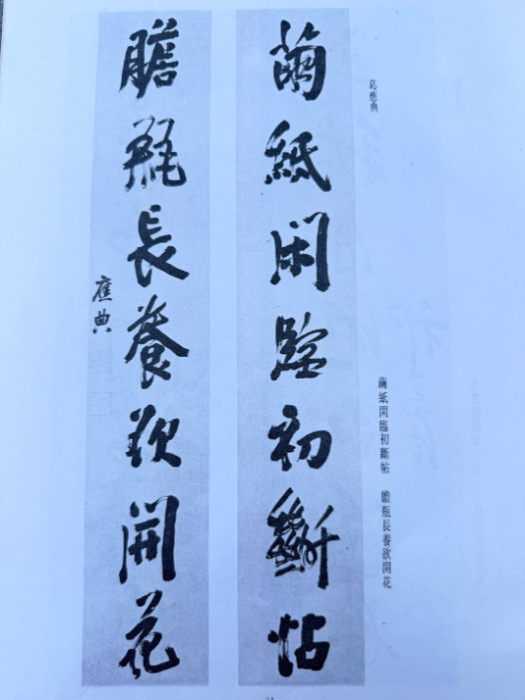 葛應典
繭紙閑臨初斷帖　膽瓶長養欲開花
繭紙閑臨初斷帖
膽瓶長養欲開花
應典